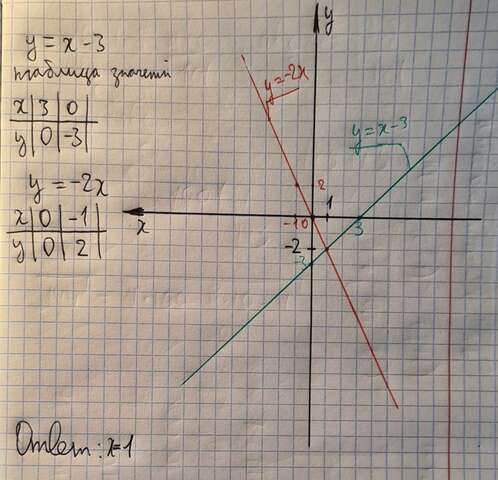 y = x - 3
таблица значений
x 3 0
y 0 -3
y = -2x
x 0 -1
y 0 2
y
y=-2x
y=x-3
2
1
x
-1 0
3
-2
-3
Ответ: x=1